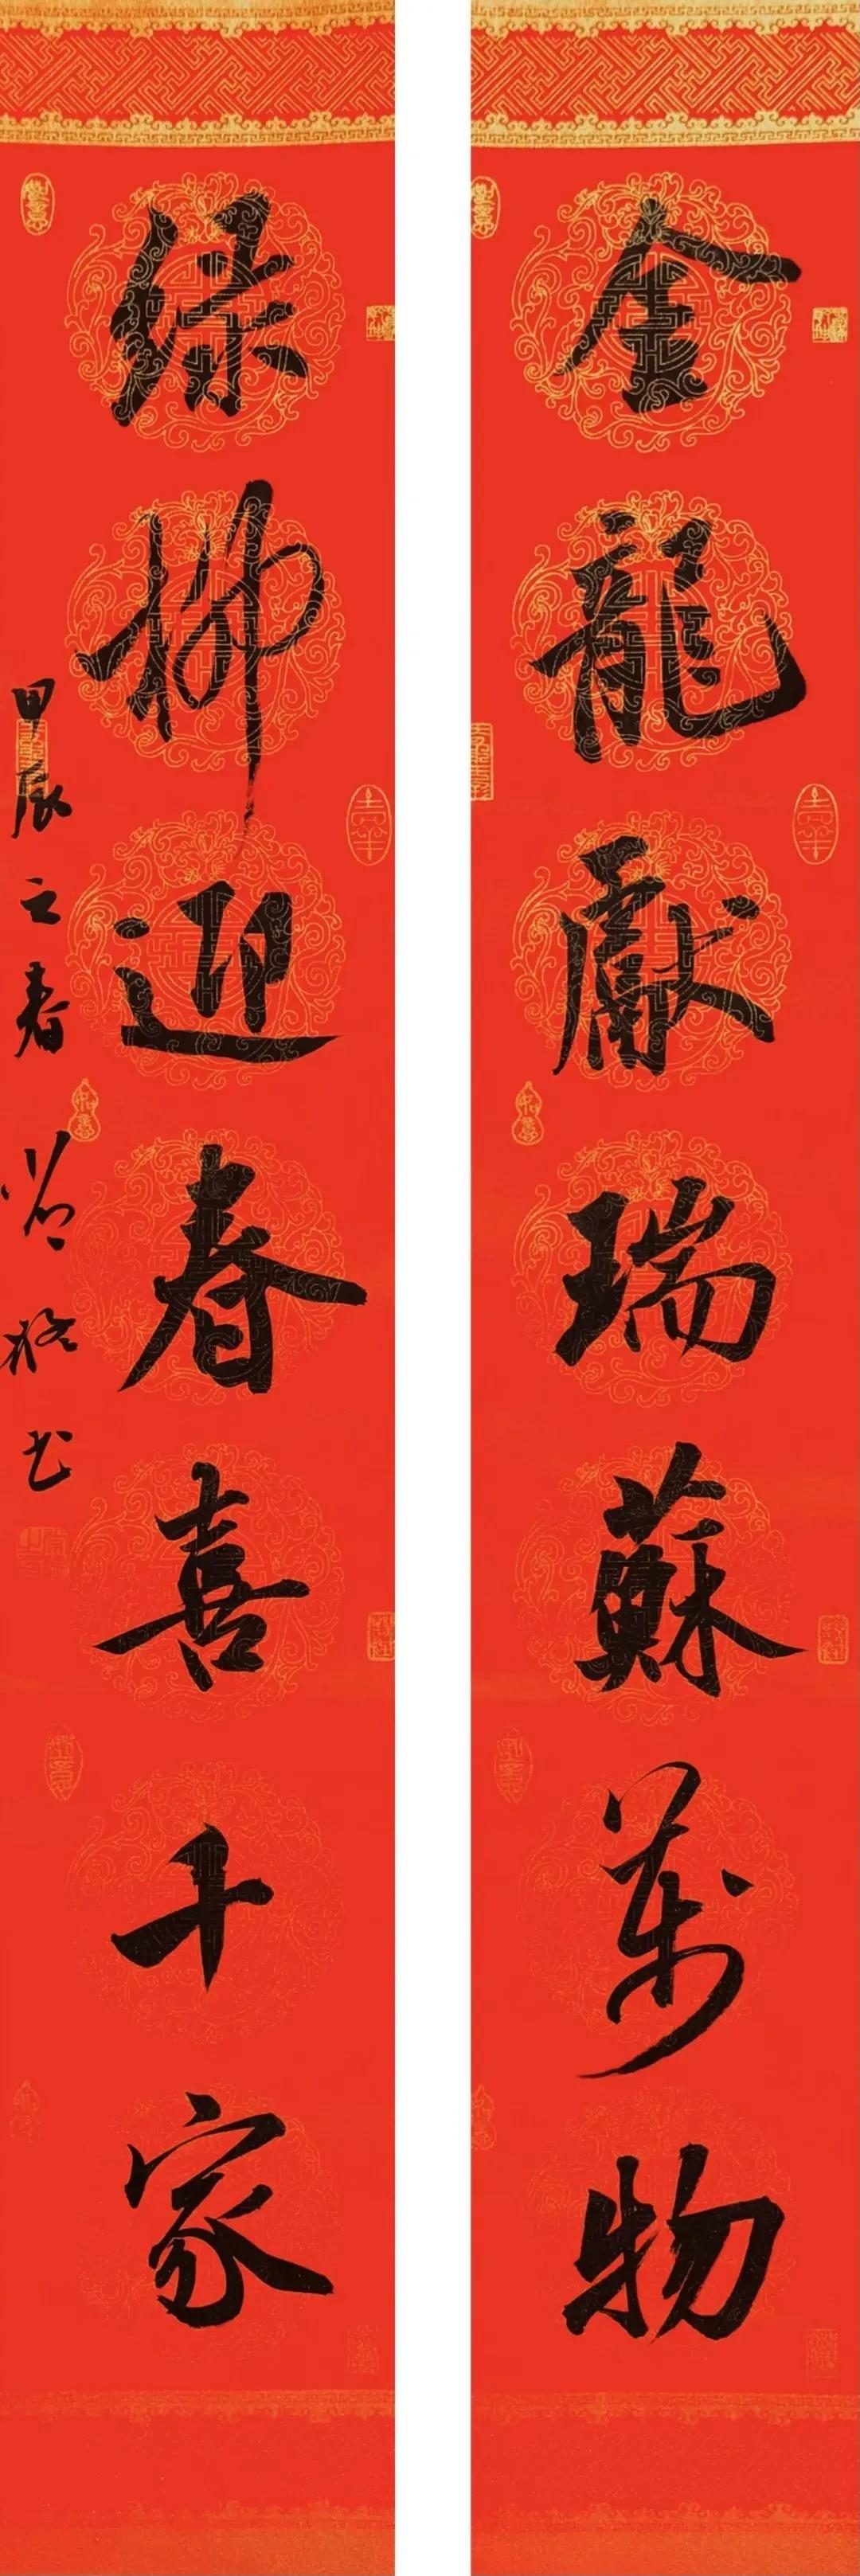 金龍獻瑞蘇萬物
綠柳迎春喜千家
甲辰之春
書